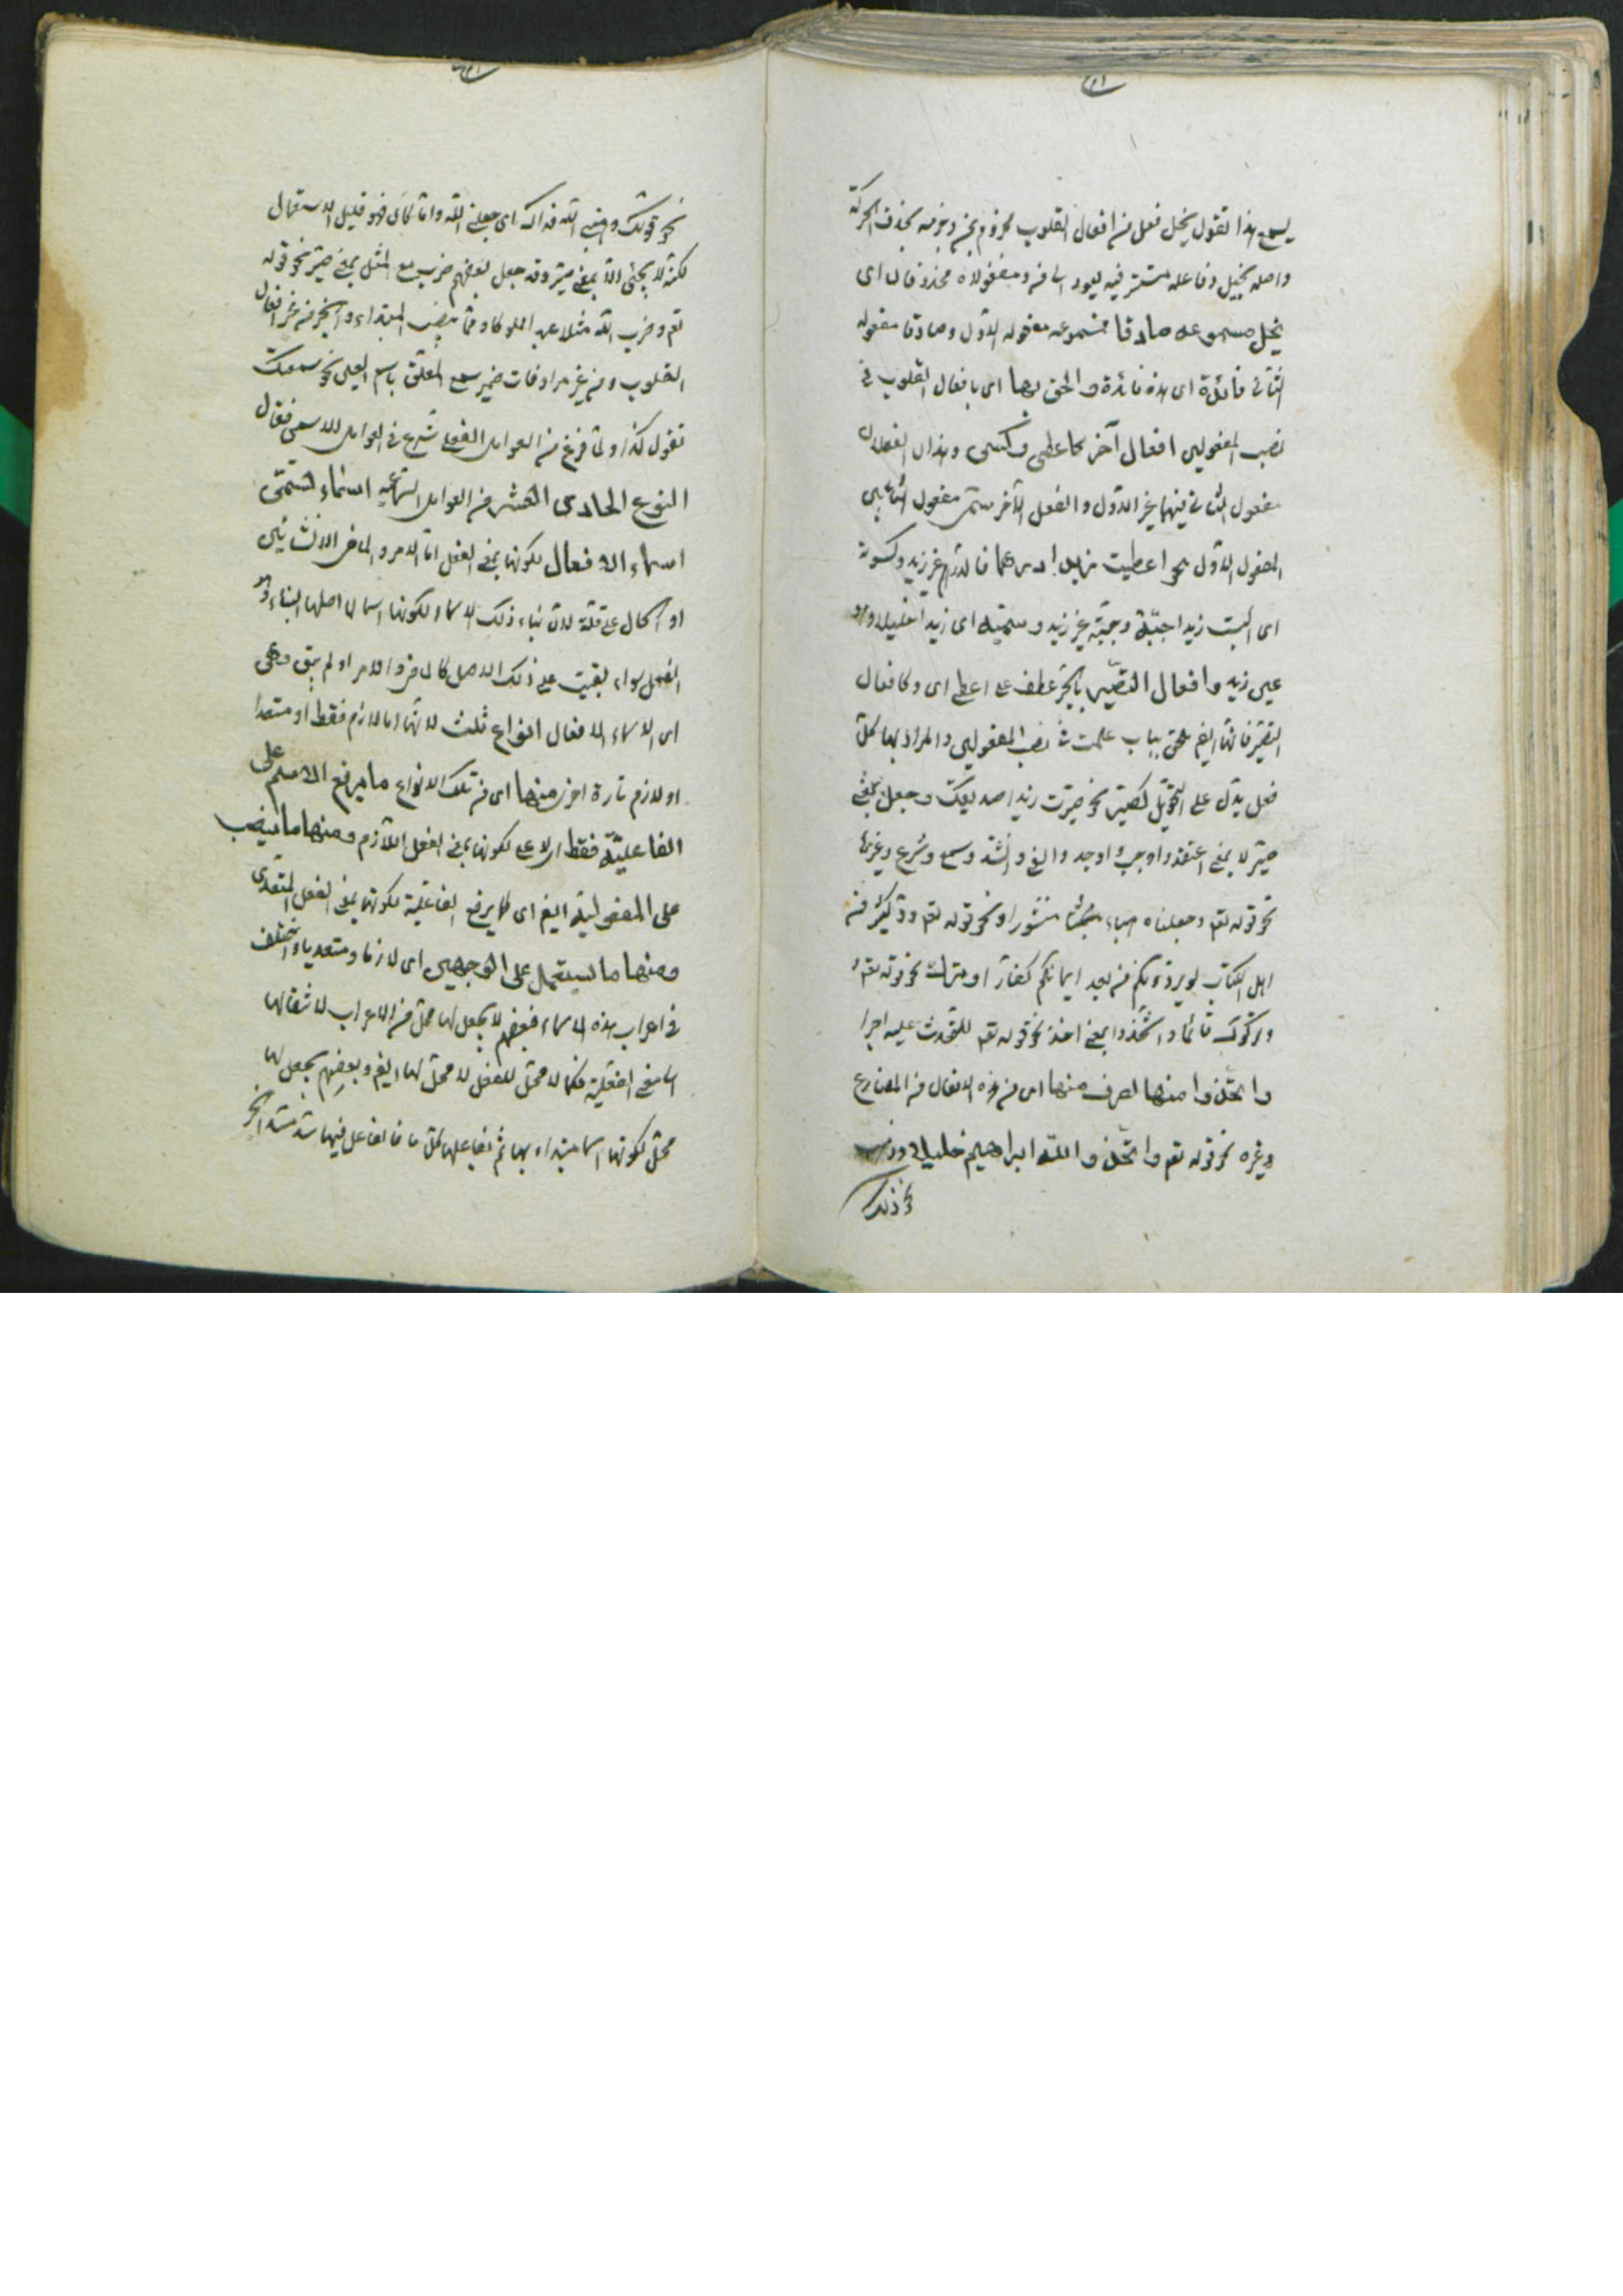 يسمع هذا تقول يخل فعل من افعال القلوب مجزوم بمن وجزمه بحذف الحركة
واصله يخيل وفاعله مستتر فيه يعود الى من ومفعولاه محذوفان اى
يخل مسموعه صادقا فمسموعه مفعوله الاول وصادقا مفعوله
الثانى فائدة اى هذه فائدة والحق بها اى بافعال القلوب فى
نصب المفعولين افعال آخر كاعطى وكسى وهذان الفعلان
مفعول الثانى فيهما غير الاول والفعل الآخر سمى مفعول الثانى عين
المفعول الاول نحو اعطيت زيدا درهما فالدرهم غير زيد وكسوته
اى البست زيدا جبّة وجبّته غير زيد وسمّيته اى زيدا
عين زيد وافعال التصيير بالجرّ عطف على اعطى اى وكافعال
التصيير فانها ايضا يلحق بباب علمت فى نصب المفعولين والمراد بها كلّ
فعل يدلّ على التحويل كصيّر نحو صيّرت زيدا صديقك وجعل بمعنى
صيّر لا بمعنى اعتقد واوجب واوجد والقى وانشد وسمع وشرع وغيرها
نحو قوله تعم وجعلناه هباء منثورا ونحو قوله تعم ودّ كثير من
اهل الكتاب لو يردّونكم من بعد ايمانكم كفارا وترك نحو قوله تعم و
وتركوك قائما واتّخذوا بمعنى اخذ نحو قوله تعم لتّخذت عليه اجرا
واتّخذوا منها اى من هذه الافعال من المضارع
وغيره نحو قوله تعم واتّخذ الله ابراهيم خليلا
نحو ذلك
نحو قولك وهبنى الله فداك اى جعلنى الله واما كان فهو قليل الاستعمال
لكنه لا يجئ الا بمعنى صيّر وقد جعل بعضهم ضرب مع المثل بمعنى صيّر نحو قوله
تعم وضرب الله مثلا عبدا مملوكا ومما ينصب المبتداء والخبر من غير افعال
القلوب ومن غير مرادفات صيّر سمع المعلّق باسم العين نحو سمعتك
تقول كذا ولما فرغ من العوامل الفعلى شرع فى العوامل الاسمى فقال
النوع الحادى العشر من العوامل السماعيه اسماء تسمّى
اسماء الافعال لكونها بمعنى الفعل اما الامر والماضى الانشائيين
او الحال على قلّة لانّ بناء ذلك الاسماء لكونها اسماء لما اصلها البناء وهو
الفعل سواء بقيت على ذلك الاصل كالماضى والامر او لم يبق وهى
اى الاسماء الافعال انواع ثلث لانها اما لازم فقط او متعدا
او لازم تارة اخرى منها اى من تلك الانواع ما يرفع الاسم على
الفاعليّة فقط لكونها بمعنى الفعل اللازم ومنها ما ينصب
على المفعولية ايضا اى كما يرفع الفاعلية لكونها بمعنى الفعل المتعدى
ومنها ما يستعمل على الوجهين اى لازما ومتعديا واختلف
فى اعراب هذه الاسماء فبعضهم لا يجعل لها محلّ من الاعراب لانتقالها
الى معنى الفعلية فكما لا محلّ للفعل لا محلّ لها ايضا وبعضهم يجعل لها
محلّ لكونها اسما مبتداء بها ثم الفاعل فيها سدّ مسدّ الخبر